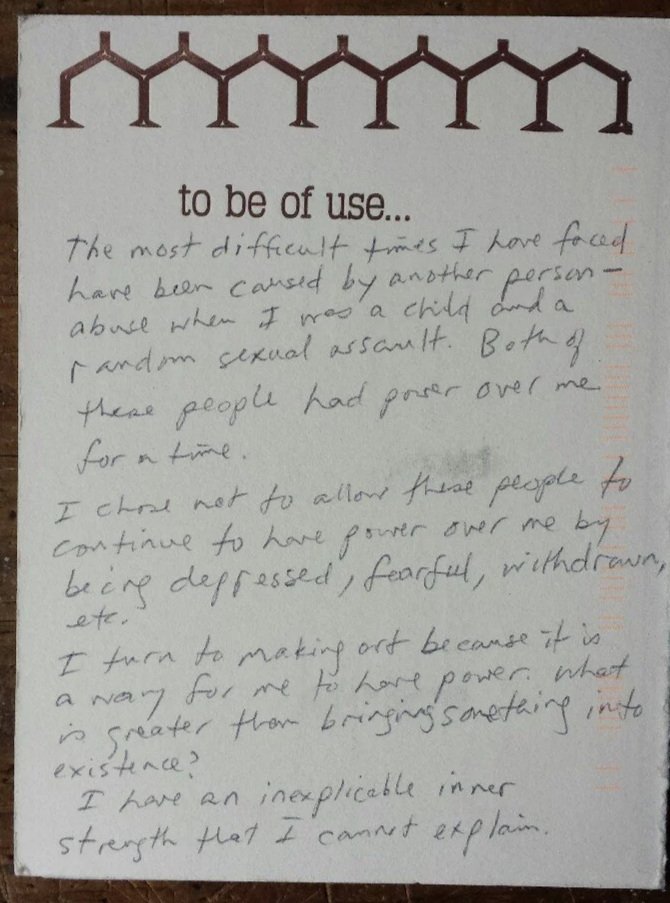 to be of use...
The most difficult times I have faced
have been caused by another person—
abuse when I was a child and a
random sexual assault. Both of
these people had power over me
for a time.
I chose not to allow these people to
continue to have power over me by
being depressed, fearful, withdrawn,
etc.
I turn to making art because it is
a way for me to have power. What
is greater than bringing something into
existence?
I have an inexplicable inner
strength that I cannot explain.